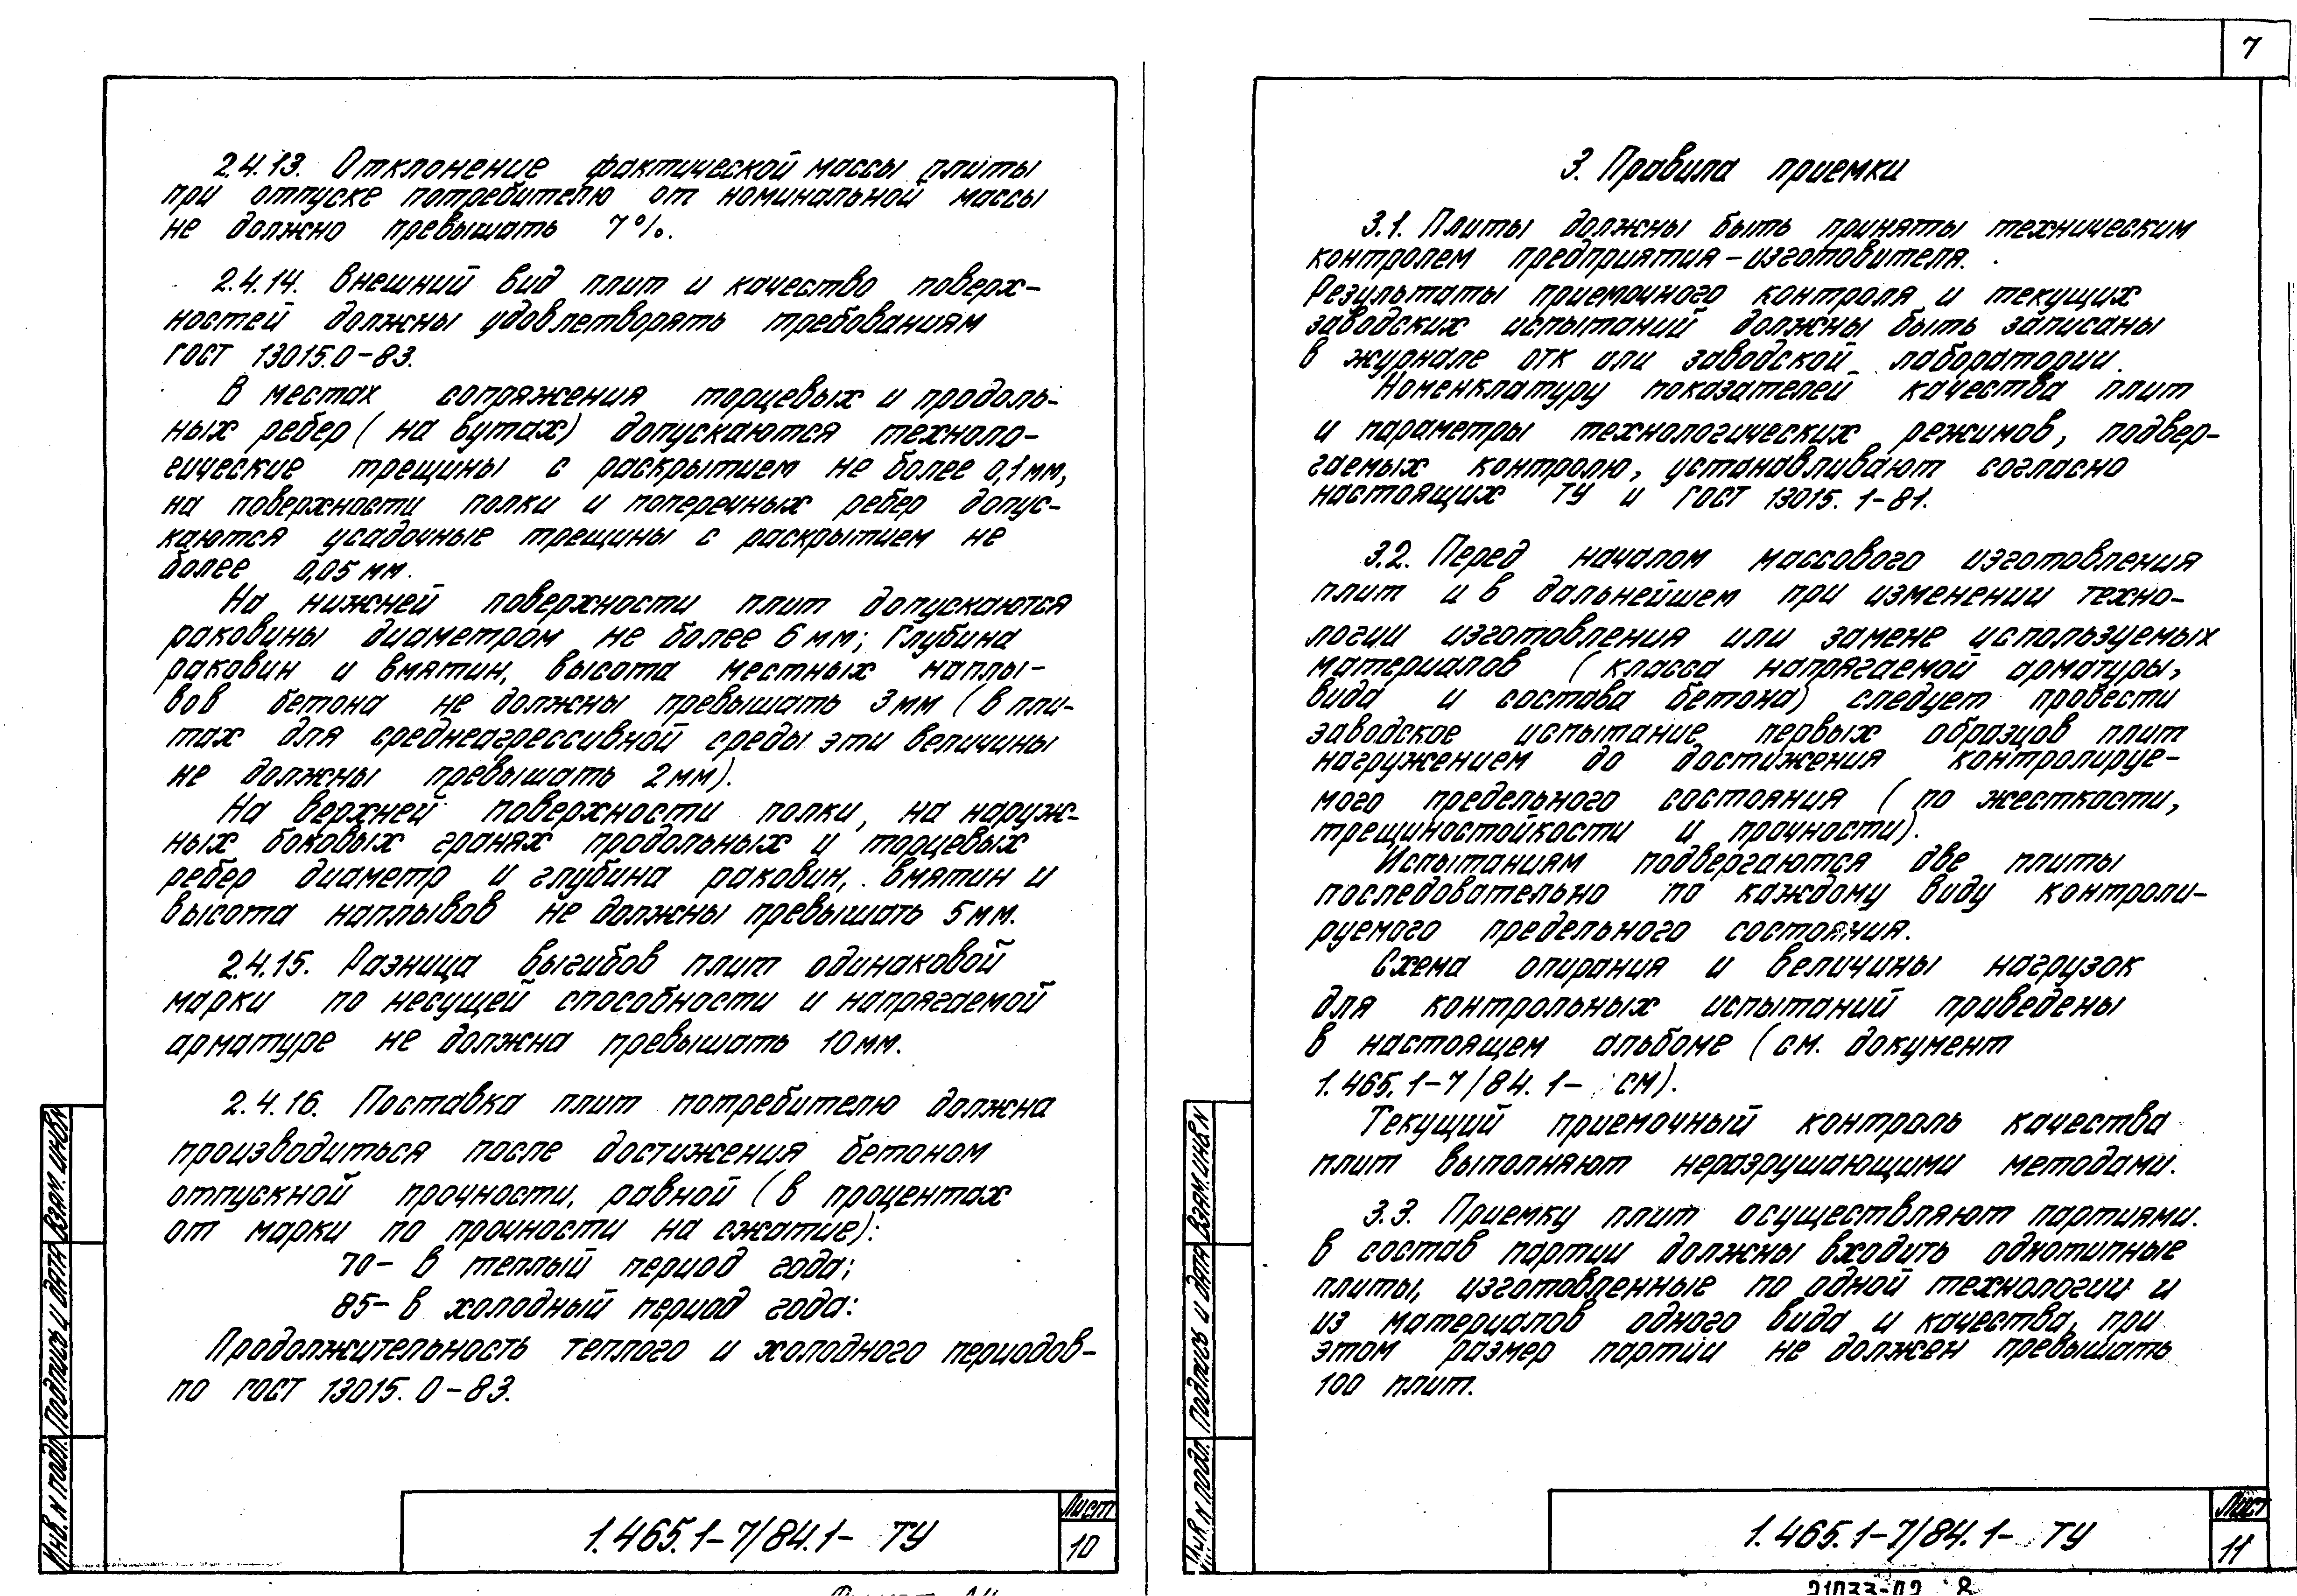 7
2.4.13. Отклонение фактической массы плиты
при отпуске потребителю от номинальной массы
не должно превышать 7%.
2.4.14. Внешний вид плит и качество поверх-
ностей должны удовлетворять требованиям
ГОСТ 13015.0-83.
В местах сопряжения торцевых и продоль-
ных ребер (на вутах) допускаются техноло-
гические трещины с раскрытием не более 0,1мм,
на поверхности полки и поперечных ребер допус-
каются усадочные трещины с раскрытием не
более 0,05 мм.
На нижней поверхности плит допускаются
раковины диаметром не более 6 мм; Глубина
раковин и вмятин, высота местных наплы-
вов бетона не должны превышать 3 мм (в пли-
тах для среднеагрессивной среды эти величины
не должны превышать 2 мм).
На верхней поверхности полки, на наруж-
ных боковых гранях продольных и торцевых
ребер диаметр и глубина раковин, вмятин и
высота наплывов не должны превышать 5 мм.
2.4.15. Разница выгибов плит одинаковой
марки по несущей способности и напрягаемой
арматуре не должна превышать 10 мм.
2.4.16. Поставка плит потребителю должна
производиться после достижения бетоном
отпускной прочности, равной (в процентах
от марки по прочности на сжатие):
70- в теплый период года;
85- в холодный период года:
Продолжительность теплого и холодного периодов-
по ГОСТ 13015.0-83.
Взам. инв N
Подпись и дата
Инв. N подл.
1.465.1-7/84.1- ТУ
Лист
10
3. Правила приемки
3.1. Плиты должны быть приняты техническим
контролем предприятия-изготовителя.
Результаты приемочного контроля и текущих
заводских испытаний должны быть записаны
в журнале ОТК или заводской лаборатории.
Номенклатуру показателей качества плит
и параметры технологических режимов, подвер-
гаемых контролю, устанавливают согласно
настоящих ТУ и ГОСТ 13015.1-81.
3.2. Перед началом массового изготовления
плит и в дальнейшем при изменении техно-
логии изготовления или замене используемых
материалов (класса напрягаемой арматуры,
вида и состава бетона) следует провести
заводское испытание первых образцов плит
нагружением до достижения контролируе-
мого предельного состояния (по жесткости,
трещиностойкости и прочности).
Испытаниям подвергаются две плиты
последовательно по каждому виду контроли-
руемого предельного состояния.
Схема опирания и величины нагрузок
для контрольных испытаний приведены
в настоящем альбоме (см. документ
1.465.1-7/84.1- СМ).
Текущий приемочный контроль качества
плит выполняют неразрушающими методами.
3.3. Приемку плит осуществляют партиями.
В состав партии должны входить однотипные
плиты, изготовленные по одной технологии и
из материалов одного вида и качества, при
этом размер партии не должен превышать
100 плит.
Взам. инв N
Подпись и дата
Инв. N подл.
1.465.1-7/84.1- ТУ
Лист
11
21033-02 8